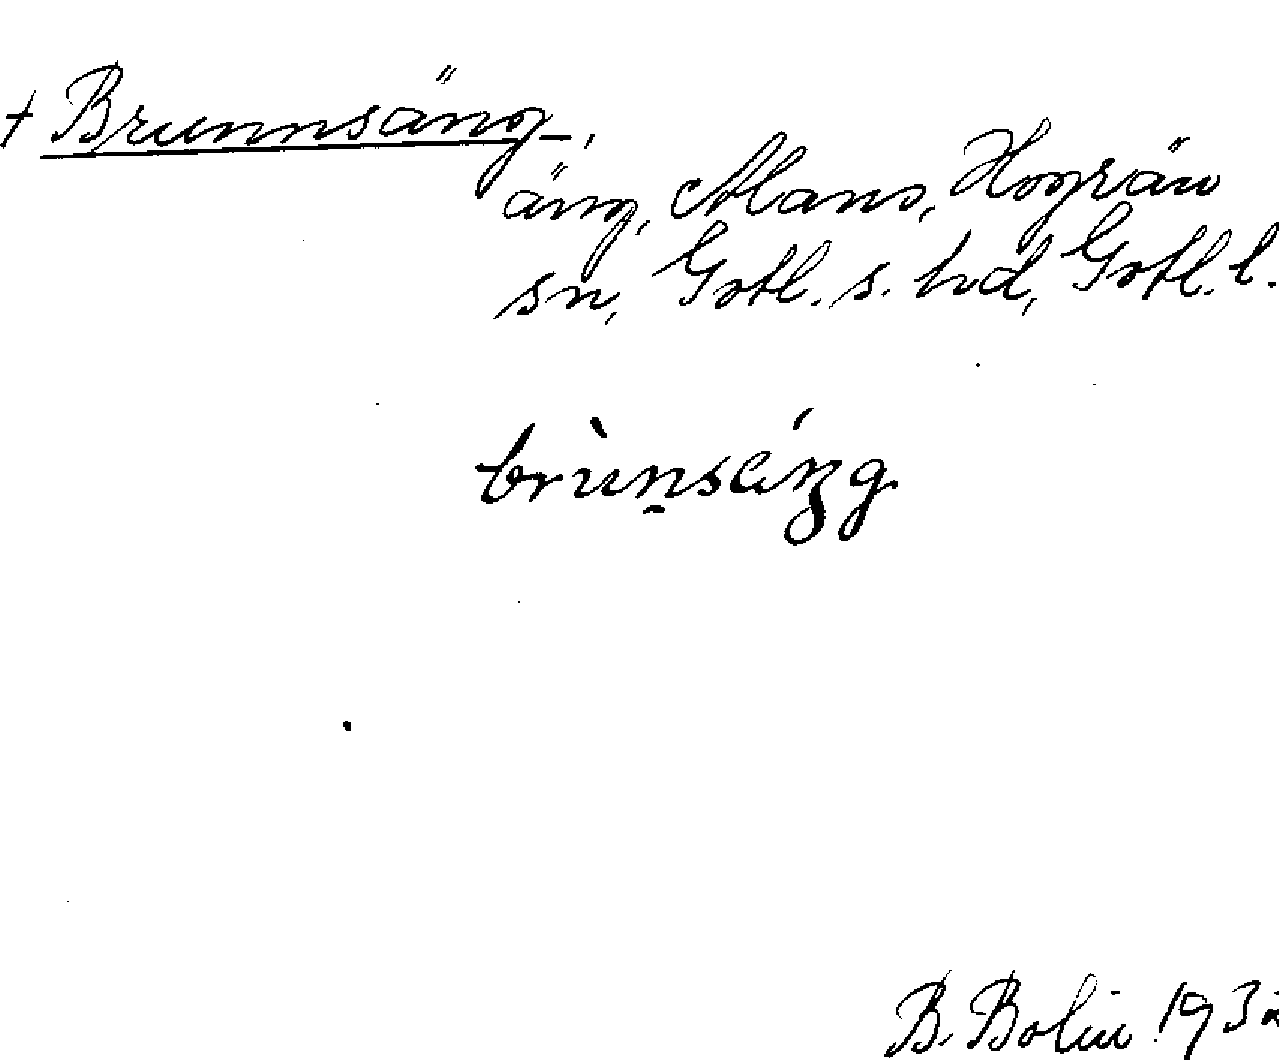 + Brunnsäng,
äng, Mans, Hogrän
sn, Gotl. s. hd, Gotl. l.
B. Bolin 1932